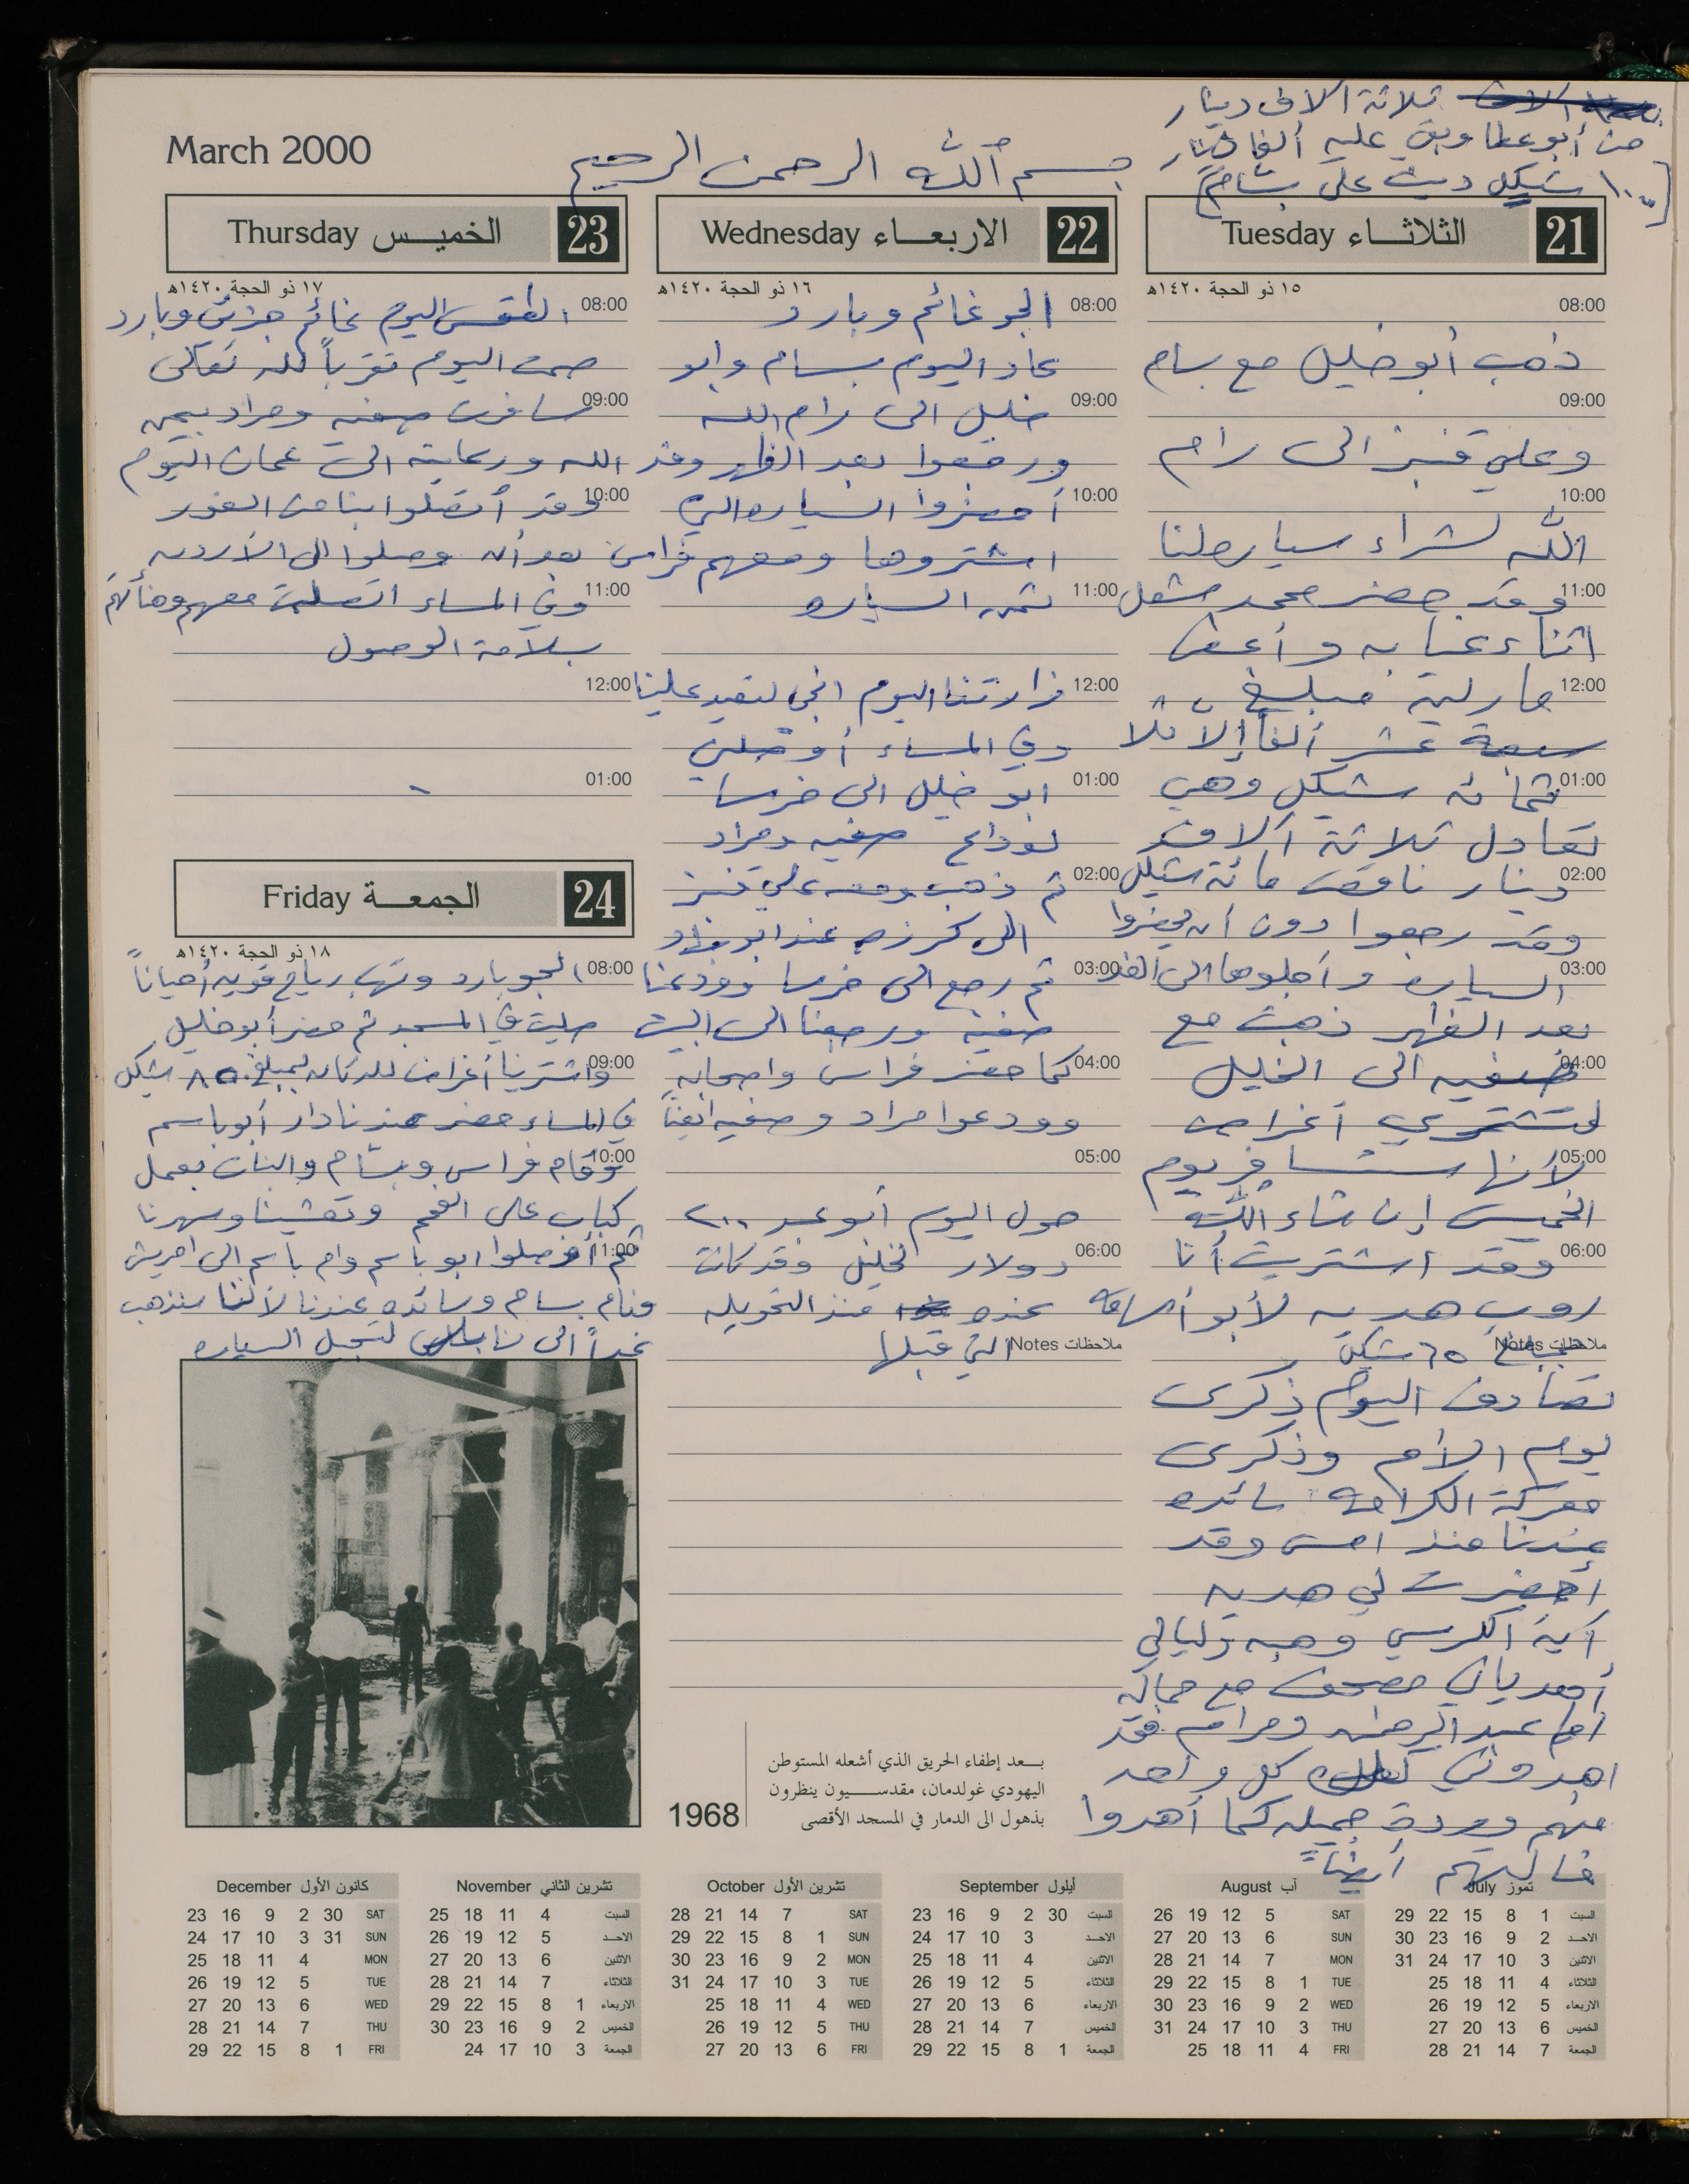 ثلاثة آلاف دينار
من أبو عطا وبقي عليه ألفا دينار
١٠٠٠ شيكل دين على بسام
March 2000
بسم الله الرحمن الرحيم
21 الثلاثـــاء Tuesday
١٥ ذو الحجة ١٤٢٠هـ
08:00
ذهب أبو خليل مع بسام
09:00
وعلي قنبز الى رام
10:00
الله لشراء سياره لنا
11:00 وقد حضر محمد مشعل
اثناء غيابه وأعطى
12:00 مبلغ
سبعة عشر ألفاً إلا
01:00 شيكل وهي
تعادل ثلاثة آلاف
02:00 دينار ناقص مائة شيكل
وقد رجعوا دون أن يحضروا
03:00 السياره وأجلوها الى الغد
بعد الظهر ذهبت مع
04:00 صفيه الى الخليل
لتشتري أغراض
05:00 لأنها ستسافر يوم
الخميس إن شاء الله
06:00 وقد اشتريت أنا
روب هديه لأبو أسامه
ملاحظات Notes بمبلغ ٦٥ شيكل
تصادف اليوم ذكرى
يوم الأم وذكرى
معركة الكرامه سائده
عندنا منذ امس وقد
أحضرت لي هديه
آية الكرسي وهبه وليالي
مصحف مع حماله
أما عبد الرحمن ومرام فقد
اهدوني كل واحد
منهم وردة جميله كما أهدوا
أيضاً
22 الاربعـــاء Wednesday
١٦ ذو الحجة ١٤٢٠هـ
08:00 الجو غائم وبارد
عاد اليوم بسام وابو
09:00 خليل الى رام الله
ورجعوا بعد الظهر وقد
10:00 أحضروا السياره التي
اشتروها ومعهم فراس
11:00 ثمن السياره
12:00 زارتنا اليوم لتعيد علينا
وفي المساء أوصلني
01:00 ابو خليل الى خرسا
لوداع صفيه ومراد
02:00 ثم ذهب ومعه علي قنبز
الى كرزه عند ابو
03:00 ثم رجع الى خرسا وودعنا
صفيه ورجعنا الى البيت
04:00 كما حضر فراس واصحابه
وودعوا مراد وصفيه ايضاً
05:00
حول اليوم أبو عمر ٢٠٠
06:00 دولار لخليل وقد كانت
عنده منذ التحويله
ملاحظات Notes التي قبلها
23 الخميـــس Thursday
١٧ ذو الحجة ١٤٢٠هـ
08:00 الطقس اليوم غائم جزئي وبارد
صمت اليوم تقرباً لله تعالى
09:00 سافرت صفيه ومراد بيمن
الله ورعايته الى عمان اليوم
10:00 وقد أتصلوا بنا من الغور
بعد أن وصلوا الى الأردن
11:00 وفي المساء اتصلت معهم وهنأتهم
بسلامة الوصول
12:00
01:00
24 الجمعـــة Friday
١٨ ذو الحجة ١٤٢٠هـ
08:00 الجو بارد وتهب رياح قويه أحياناً
صليت في المسجد ثم حضر أبو خليل
09:00 واشترينا أغراض للدكان بمبلغ ٨٥٠ شيكل
في المساء حضر عندنا دار أبو باسم
10:00 وقام فراس وبسام والبنات بعمل
كباب على الفحم وتعشينا وسهرنا
11:00 ثم أوصلوا ابو باسم وام باسم الى امريش
ونام بسام وسائده عندنا لأننا سنذهب
غداً الى نابلس لتسجيل السياره
1968
بـــعد إطفاء الحريق الذي أشعله المستوطن
اليهودي غولدمان، مقدســـيون ينظرون
بذهول الى الدمار في المسجد الأقصى
تموز July
السبت 1 8 15 22 29
الاحـد 2 9 16 23 30
الاثنين 3 10 17 24 31
الثلاثاء 4 11 18 25
الاربعاء 5 12 19 26
الخميس 6 13 20 27
الجمعة 7 14 21 28
آب August
SAT 5 12 19 26
SUN 6 13 20 27
MON 7 14 21 28
TUE 1 8 15 22 29
WED 2 9 16 23 30
THU 3 10 17 24 31
FRI 4 11 18 25
أيلول September
السبت 30 2 9 16 23
الاحـد 3 10 17 24
الاثنين 4 11 18 25
الثلاثاء 5 12 19 26
الاربعاء 6 13 20 27
الخميس 7 14 21 28
الجمعة 1 8 15 22 29
تشرين الأول October
SAT 7 14 21 28
SUN 1 8 15 22 29
MON 2 9 16 23 30
TUE 3 10 17 24 31
WED 4 11 18 25
THU 5 12 19 26
FRI 6 13 20 27
تشرين الثاني November
السبت 4 11 18 25
الاحـد 5 12 19 26
الاثنين 6 13 20 27
الثلاثاء 7 14 21 28
الاربعاء 1 8 15 22 29
الخميس 2 9 16 23 30
الجمعة 3 10 17 24
كانون الأول December
SAT 30 2 9 16 23
SUN 31 3 10 17 24
MON 4 11 18 25
TUE 5 12 19 26
WED 6 13 20 27
THU 7 14 21 28
FRI 1 8 15 22 29